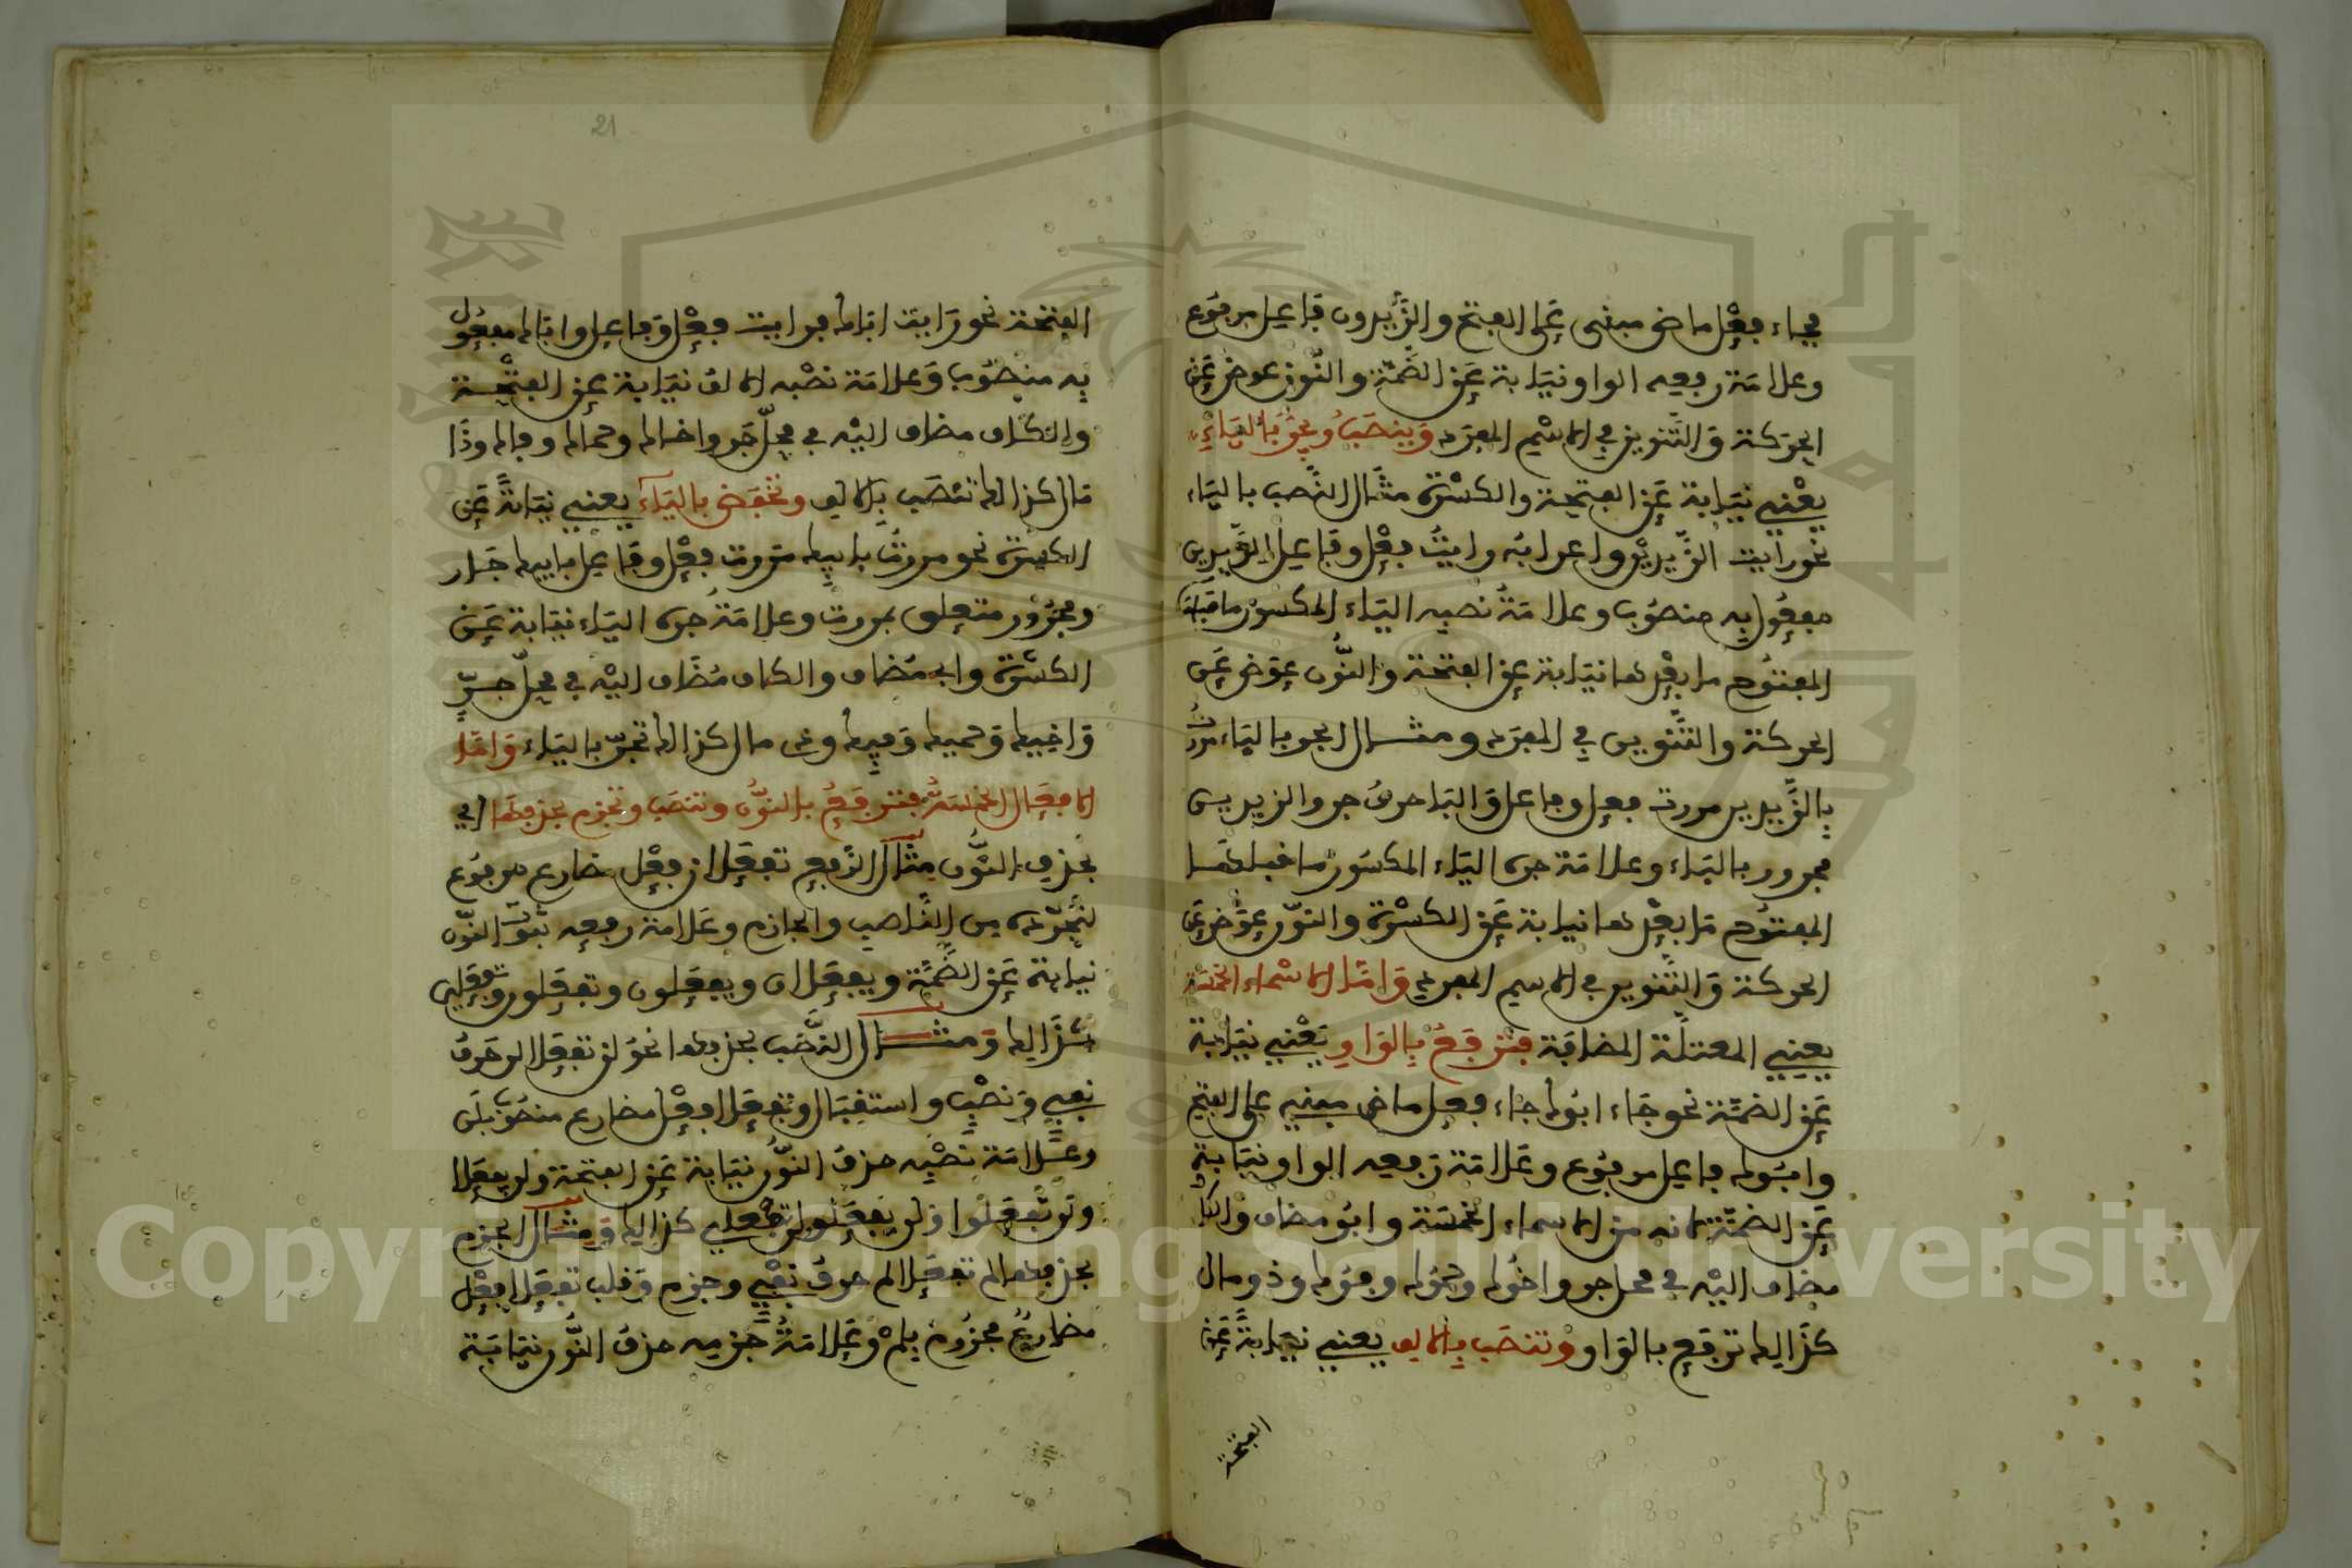 فجاء فعل ماض مبني على الفتح والزيدون فاعل مرفوع
وعلامة رفعه الواو نيابة عن الضمة والنون عوض عن
الحركة والتنوين في الاسم المفرد وينصب ويجر بالياء
يعني نيابة عن الفتحة والكسرة مثال النصب بالياء
نحو رايت الزيدين واعرابه رايت فعل وفاعل الزيدين
مفعول به منصوب وعلامة نصبه الياء المكسور ما قبلها
المفتوح ما بعدها نيابة عن الفتحة والنون عوض عن
الحركة والتنوين في المفرد ومثال الجر بالياء مررت
بالزيدين مررت فعل وفاعل والباء حرف جر والزيدين
مجرور بالباء وعلامة جره الياء المكسور ما قبلها
المفتوح ما بعدها نيابة عن الكسرة والنون عوض عن
الحركة والتنوين في الاسم المفرد واما الاسماء الخمسة
يعني المعتلة المضافة فترفع بالواو يعني نيابة
عن الضمة نحو جاء ابوك جاء فعل ماض مبني على الفتح
وابوك فاعل مرفوع وعلامة رفعه الواو نيابة
عن الضمة لانه من الاسماء الخمسة وابو مضاف والكاف
مضاف اليه في محل جر واخوك وحموك وفوك وذو مال
كذالك ترفع بالواو وتنصب بالالف يعني نيابة عن
الفتحة
21
الفتحة نحو رايت اباك فرايت فعل وفاعل واباك مفعول
به منصوب وعلامة نصبه الالف نيابة عن الفتحة
والكاف مضاف اليه في محل جر واخاك وحماك وفاك وذا
مال كذالك تنصب بالالف وتخفض بالياء يعني نيابة عن
الكسرة نحو مررت بابيك مررت فعل وفاعل بابيك جار
ومجرور متعلق بمررت وعلامة جره الياء نيابة عن
الكسرة وابي مضاف والكاف مضاف اليه في محل جر
واخيك وحميك وفيك وذي مال كذالك تجر بالياء واما
الافعال الخمسة فترفع بالنون وتنصب وتجزم بحذفها اي
بحذف النون مثال الرفع تفعلان فعل مضارع مرفوع
لتجرده من الناصب والجازم وعلامة رفعه ثبوت النون
نيابة عن الضمة ويفعلان ويفعلون وتفعلون وتفعلين
كذالك ومثال النصب بحذفها نحو لن تفعلا لن حرف
نفي ونصب واستقبال وتفعلا فعل مضارع منصوب بلن
وعلامة نصبه حذف النون نيابة عن الفتحة ولن يفعلا
ولن تفعلوا ولن يفعلوا ولن تفعلي كذالك ومثال الجزم
بحذفها لم تفعلا لم حرف نفي وجزم وقلب تفعلا فعل
مضارع مجزوم بلم وعلامة جزمه حذف النون نيابة
Copyright © King Saud University